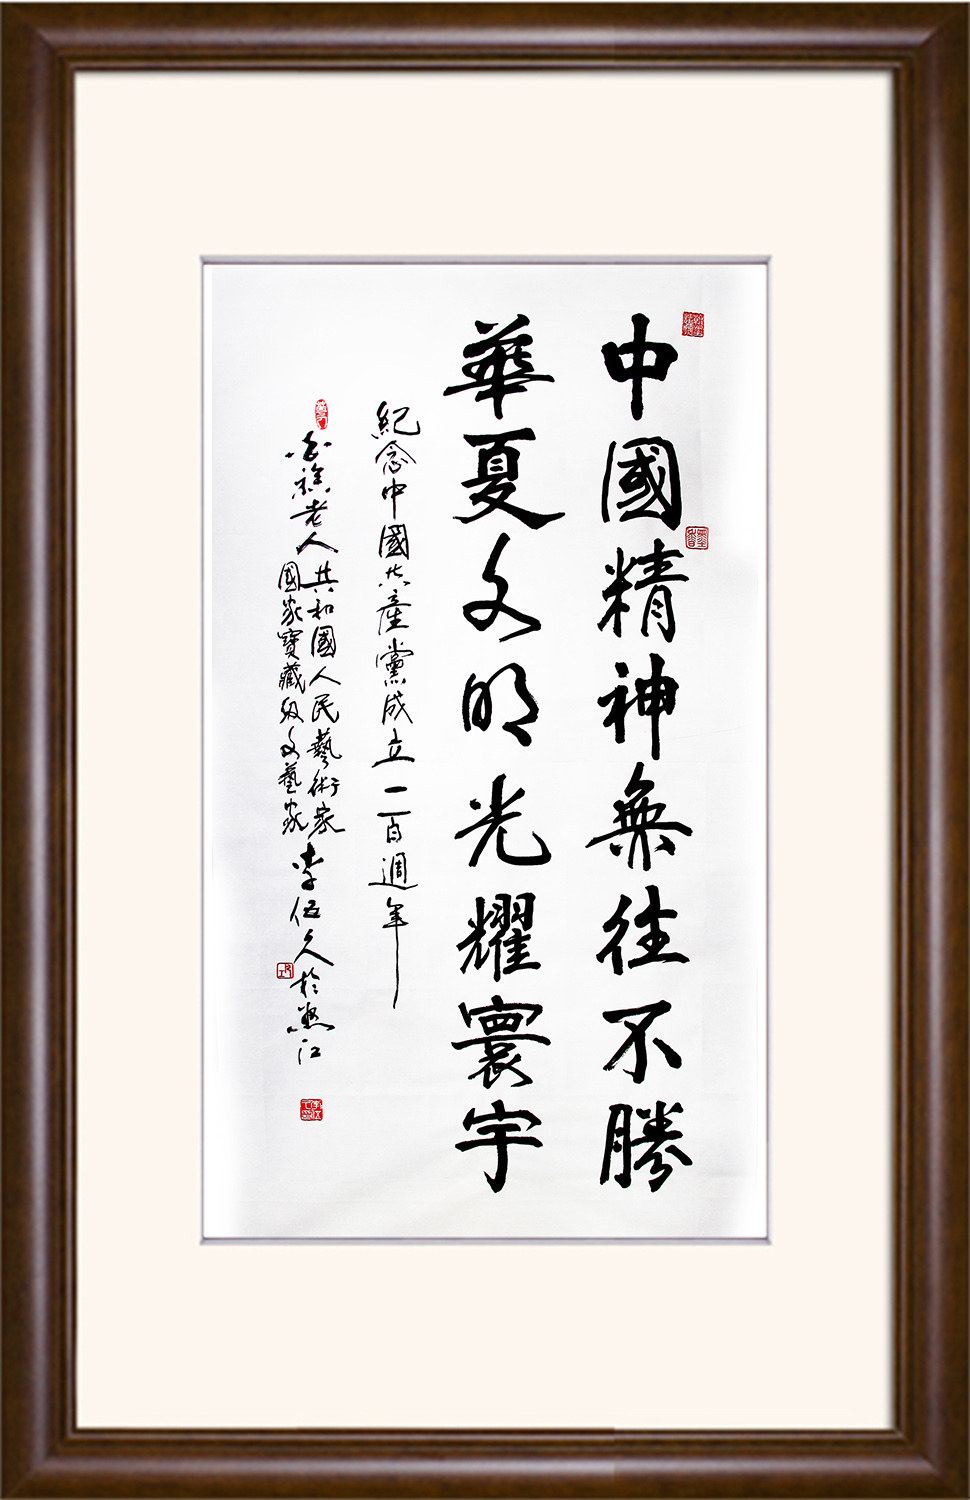 中國精神無往不勝
華夏文明光耀寰宇
紀念中國共產黨成立一百週年
老人共和國人民藝術家
國家寶藏級文藝家
李伍久於江